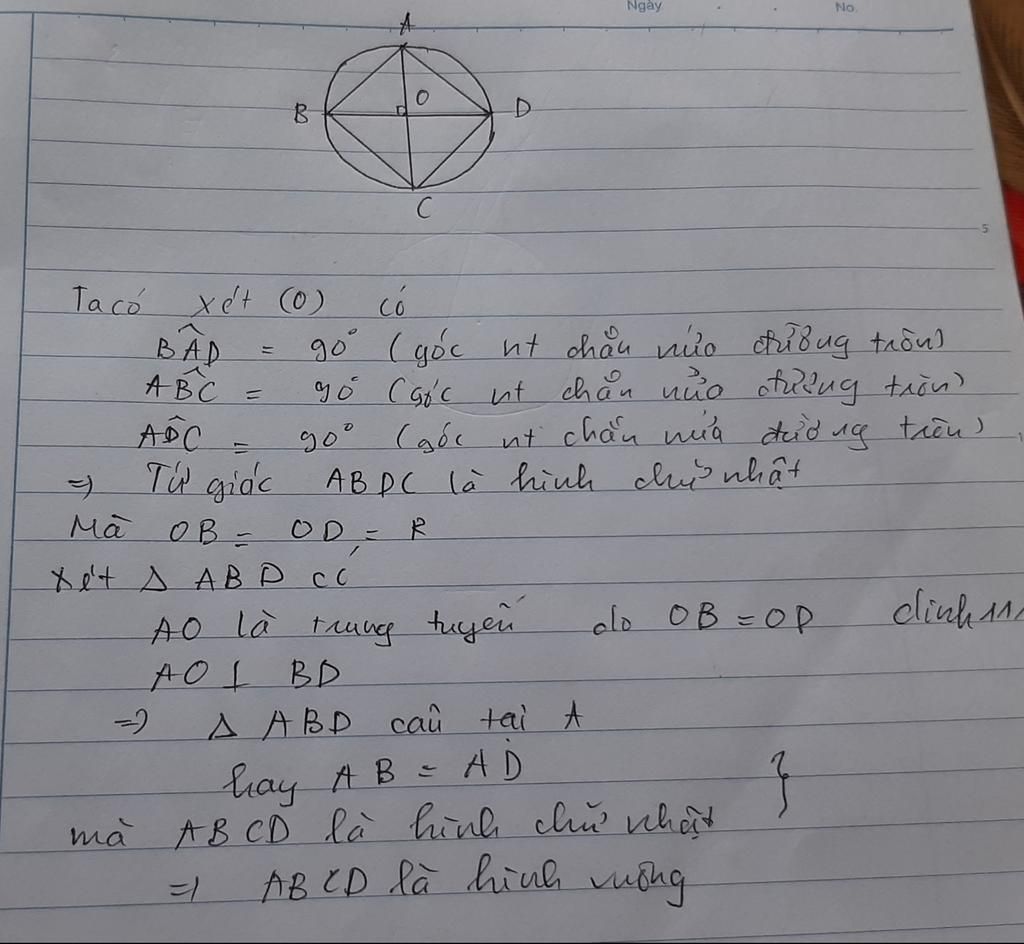 Ngày . . No.
A
B O D
C
5
Ta có xét (O) có
BÂD = 90° (góc nt chắn nửa đường tròn)
AB̂C = 90° (góc nt chắn nửa đường tròn)
AD̂C = 90° (góc nt chắn nửa đường tròn)
=> Tứ giác ABDC là hình chữ nhật
Mà OB = OD = R
Xét Δ ABD có
AO là trung tuyến do OB = OD
AO ⊥ BD
=> Δ ABD cân tại A
hay AB = AD }
mà ABCD là hình chữ nhật
=> ABCD là hình vuông